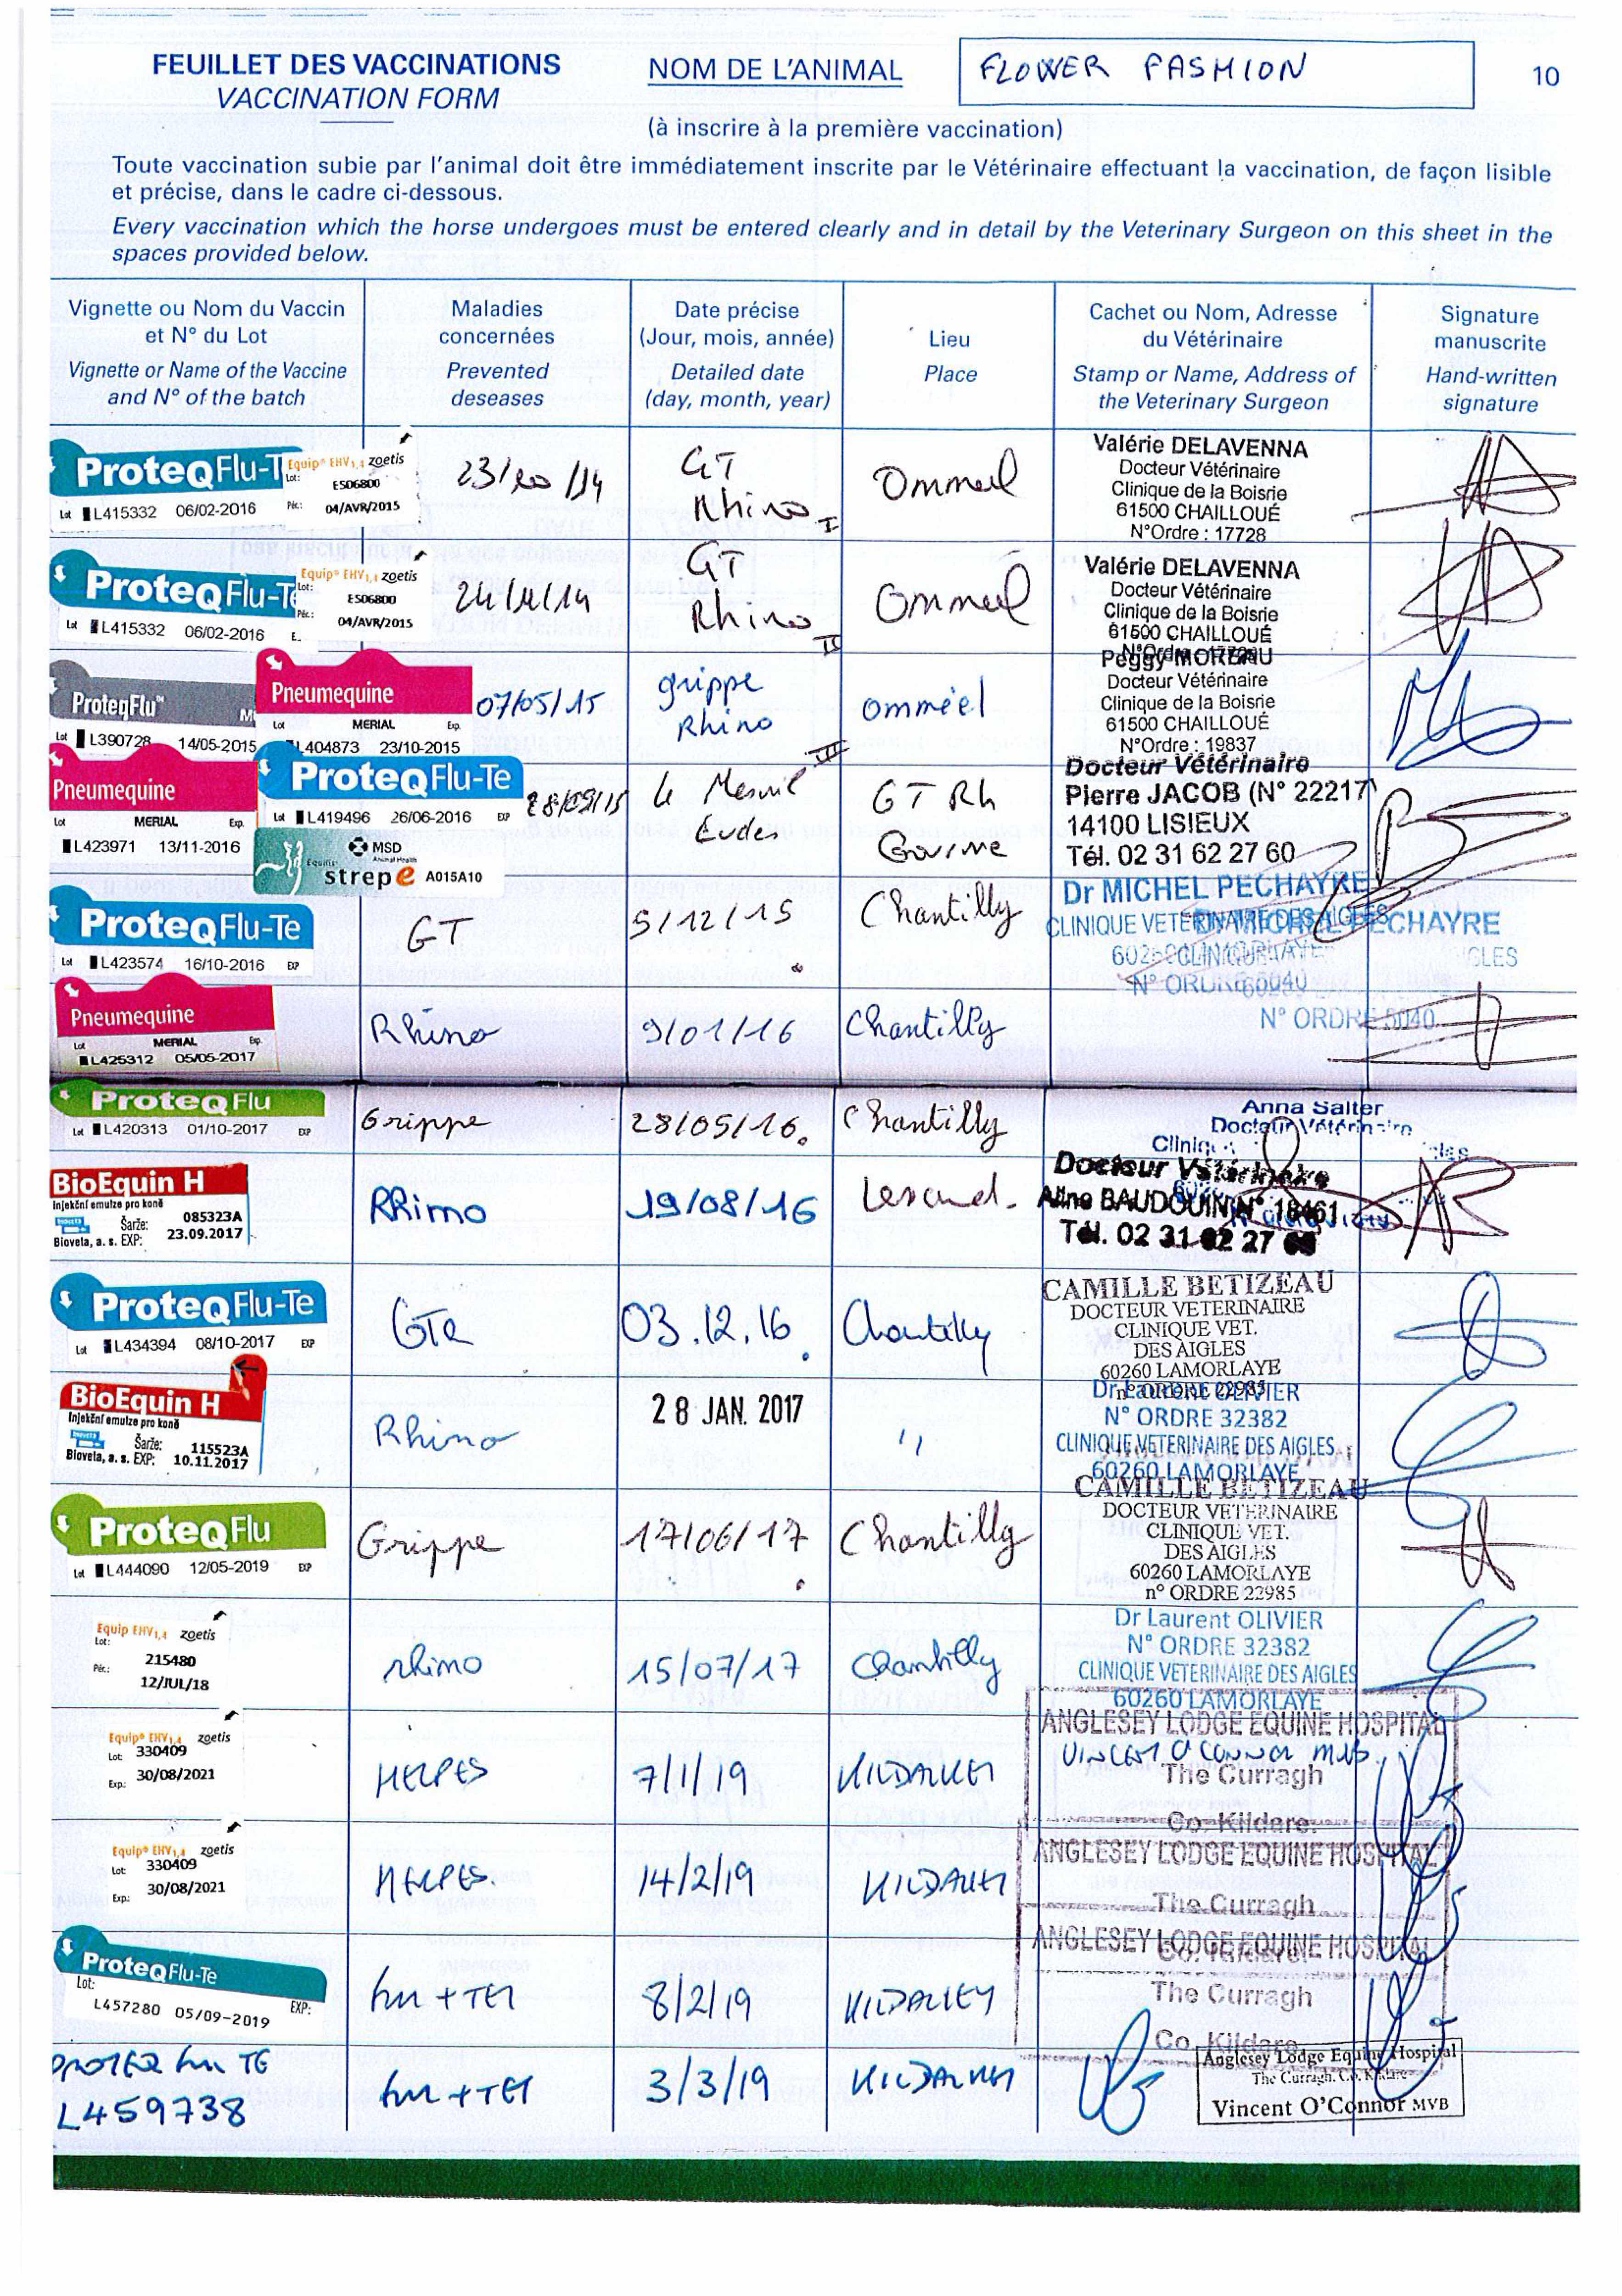 FEUILLET DES VACCINATIONS
VACCINATION FORM
NOM DE L'ANIMAL
FLOWER FASHION
10
(à inscrire à la première vaccination)
Toute vaccination subie par l'animal doit être immédiatement inscrite par le Vétérinaire effectuant la vaccination, de façon lisible
et précise, dans le cadre ci-dessous.
Every vaccination which the horse undergoes must be entered clearly and in detail by the Veterinary Surgeon on this sheet in the
spaces provided below.
Vignette ou Nom du Vaccin
et N° du Lot
Vignette or Name of the Vaccine
and N° of the batch
Maladies
concernées
Prevented
deseases
Date précise
(Jour, mois, année)
Detailed date
(day, month, year)
Lieu
Place
Cachet ou Nom, Adresse
du Vétérinaire
Stamp or Name, Address of
the Veterinary Surgeon
Signature
manuscrite
Hand-written
signature
ProteqFlu-T
Lot L415332 06/02-2016
Equip® EHV1,4 zoetis
Lot: E506800
Péc.: 04/AVR/2015
23/10/14
GT
Rhino I
Ommeel
Valérie DELAVENNA
Docteur Vétérinaire
Clinique de la Boisrie
61500 CHAILLOUÉ
N°Ordre : 17728
ProteqFlu-Te
Lot L415332 06/02-2016 E.
Equip® EHV1,4 zoetis
Lot: E506800
Péc.: 04/AVR/2015
24/11/14
GT
Rhino II
Ommeel
Valérie DELAVENNA
Docteur Vétérinaire
Clinique de la Boisrie
61500 CHAILLOUÉ
ProteqFlu™
Lot L390728 14/05-2015
Pneumequine
Lot MERIAL Exp.
L404873 23/10-2015
07/05/15
grippe
Rhino III
omméel
Peggy MOREAU
Docteur Vétérinaire
Clinique de la Boisrie
61500 CHAILLOUÉ
N°Ordre : 19837
Pneumequine
Lot MERIAL Exp.
L423971 13/11-2016
ProteqFlu-Te
Lot L419496 26/06-2016 EXP
Equilis
MSD
Animal Health
strepe A015A10
28/09/15
Le Mesnil
Eudes
GT Rh
Gourme
Docteur Vétérinaire
Pierre JACOB (N° 22217)
14100 LISIEUX
Tél. 02 31 62 27 60
ProteqFlu-Te
Lot L423574 16/10-2016 EXP
GT
5/12/15
Chantilly
Dr MICHEL PECHAYRE
Pneumequine
Lot MERIAL Exp.
L425312 05/05-2017
Rhino
9/01/16
Chantilly
N° ORDRE 5040
ProteqFlu
Lot L420313 01/10-2017 EXP
Grippe
28/05/16.
Chantilly
Anna Salter
Docteur Vétérinaire
BioEquin H
injekční emulze pro koně
Šarže: 085323A
Bioveta, a. s. EXP: 23.09.2017
RRimo
19/08/16
Docteur Vétérinaire
Aline BAUDOUIN N° 18461
Tél. 02 31 62 27 60
ProteqFlu-Te
Lot L434394 08/10-2017 EXP
GTe
03.12.16
Chantilly
CAMILLE BETIZEAU
DOCTEUR VETERINAIRE
CLINIQUE VET.
DES AIGLES
60260 LAMORLAYE
n° ORDRE 22985
BioEquin H
Injekční emulze pro koně
Šarže: 115523A
Bioveta, a. s. EXP: 10.11.2017
Rhino
28 JAN. 2017
"
Dr Laurent OLIVIER
N° ORDRE 32382
CLINIQUE VETERINAIRE DES AIGLES
60260 LAMORLAYE
ProteqFlu
Lot L444090 12/05-2019 EXP
Grippe
17/06/17
Chantilly
CAMILLE BETIZEAU
DOCTEUR VETERINAIRE
CLINIQUE VET.
DES AIGLES
60260 LAMORLAYE
n° ORDRE 22985
Equip EHV1,4 zoetis
Lot: 215480
Péc.: 12/JUL/18
rhimo
15/07/17
Chantilly
Dr Laurent OLIVIER
N° ORDRE 32382
CLINIQUE VETERINAIRE DES AIGLES
60260 LAMORLAYE
Equip® EHV1,4 zoetis
Lot: 330409
Exp.: 30/08/2021
HERPES
7/1/19
KILDALKEY
ANGLESEY LODGE EQUINE HOSPITAL
VINCENT O'CONNOR MVB.
The Curragh
Co. Kildare.
Equip® EHV1,4 zoetis
Lot: 330409
Exp.: 30/08/2021
HERPES.
14/2/19
KILDALKEY
ANGLESEY LODGE EQUINE HOSPITAL
The Curragh
Co. Kildare.
ProteqFlu-Te
Lot: L457280 05/09-2019 EXP:
flu + TET
8/2/19
KILDALKEY
ANGLESEY LODGE EQUINE HOSPITAL
The Curragh
Co. Kildare
PROTEQ flu TE
L459738
flu + TET
3/3/19
KILDALKEY
Anglesey Lodge Equine Hospital
The Curragh, Co. Kildare
Vincent O'Connor MVB